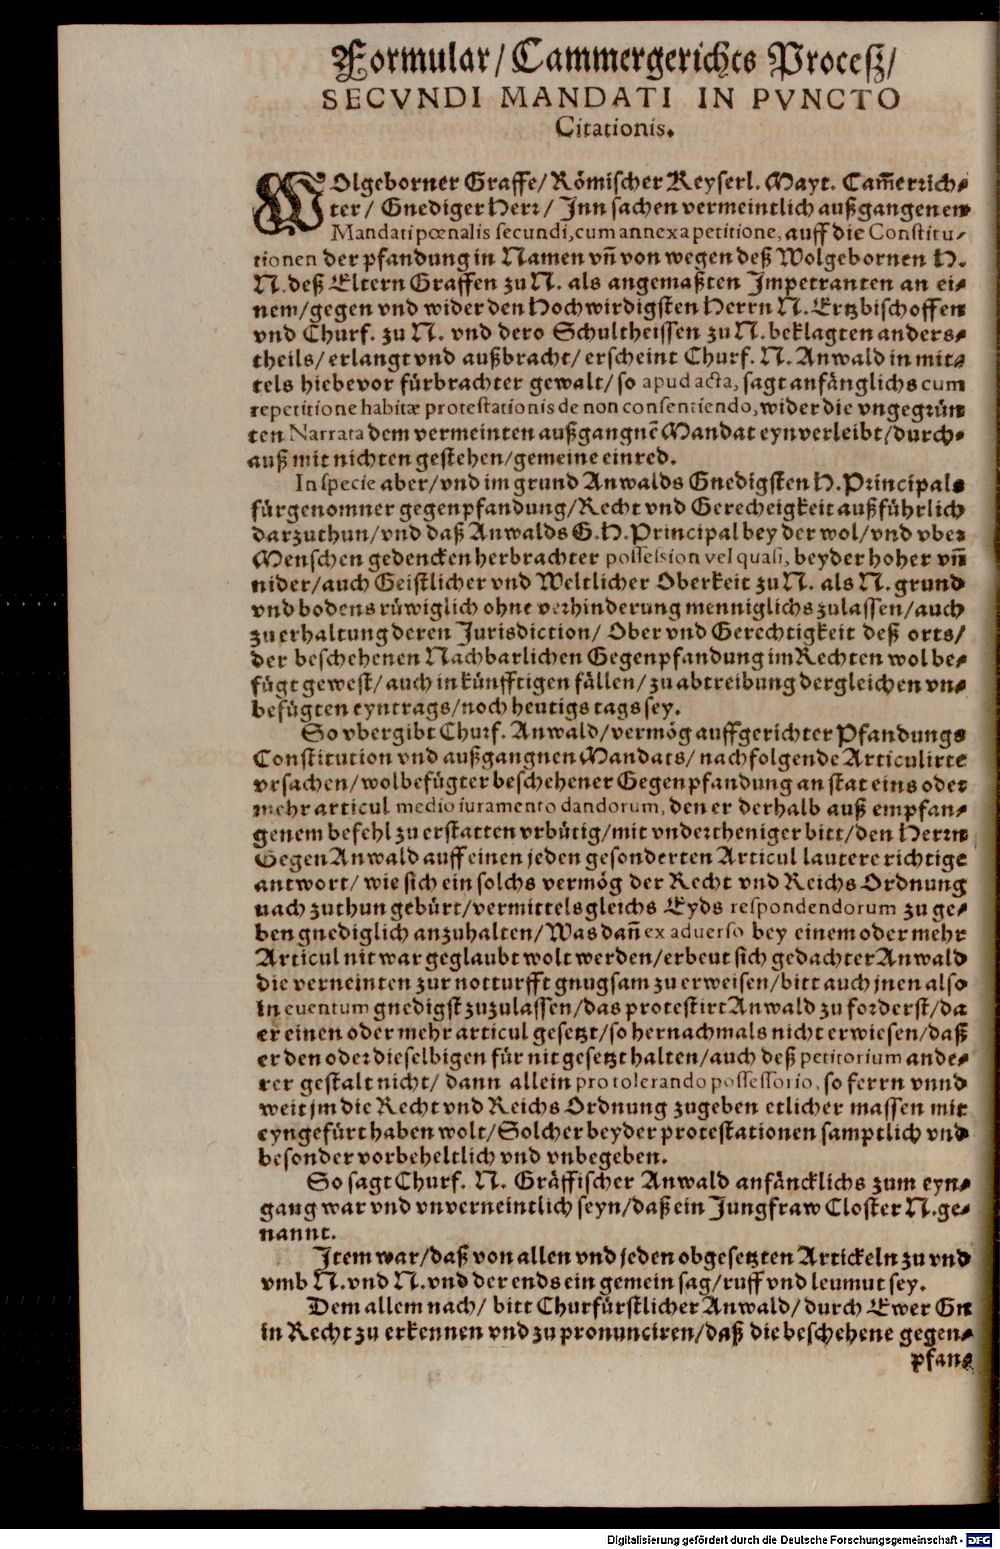 Formular/ Cammergerichts Proceß/
SECVNDI MANDATI IN PVNCTO
Citationis.
WOlgeborner Graffe/ Römischer Keyserl. Mayt. Cam̄errich-
ter/ Gnediger Herr/ Inn sachen vermeintlich außgangenen
Mandati pœnalis secundi, cum annexa petitione, auff die Constitu-
tionen der pfandung in Namen vn̄ von wegen deß Wolgebornen H.
N. deß Eltern Graffen zu N. als angemaßten Impetranten an ei-
nem/ gegen vnd wider den Hochwirdigsten Herrn N. Ertzbischoffen
vnd Churf. zu N. vnd dero Schultheissen zu N. beklagten anders-
theils/ erlangt vnd außbracht/ erscheint Churf. N. Anwald in mit-
tels hiebevor fürbrachter gewalt/ so apud acta, sagt anfänglichs cum
repetitione habitæ protestationis de non consentiendo, wider die vngegrün
ten Narrata dem vermeinten außgangnē Mandat eynverleibt/ durch-
auß mit nichten gestehen/ gemeine einred.
In specie aber/ vnd im grund Anwalds Gnedigsten H. Principals
fürgenomner gegenpfandung/ Recht vnd Gerecheigkeit außführlich
darzuthun/ vnd daß Anwalds G. H. Principal bey der wol/ vnd vber
Menschen gedencken herbrachter possession vel quasi, beyder hoher vn̄
nider/ auch Geistlicher vnd Weltlicher Oberkeit zu N. als N. grund
vnd bodens rüwiglich ohne verhinderung menniglichs zulassen/ auch
zu erhaltung deren Jurisdiction/ Ober vnd Gerechtigkeit deß orts/
der beschehenen Nachbarlichen Gegenpfandung im Rechten wol be-
fügt gewest/ auch in künfftigen fällen/ zu abtreibung dergleichen vn-
befügten eyntrags/ noch heutigs tags sey.
So vbergibt Churf. Anwald/ vermög auffgerichter Pfandungs
Constitution vnd außgangnen Mandats/ nachfolgende Articulirte
vrsachen/ wolbefügter beschehener Gegenpfandung an stat eins oder
mehr articul medio iuramento dandorum, den er derhalb auß empfan-
genem befehl zu erstatten vrbütig/ mit vndertheniger bitt/ den Herrn
Gegen Anwald auff einen jeden gesonderten Articul lautere richtige
antwort/ wie sich ein solchs vermög der Recht vnd Reichs Ordnung
nach zuthun gebürt/ vermittels gleichs Eyds respondendorum zu ge-
ben gnediglich anzuhalten/ Was dañ ex aduerso bey einem oder mehr
Articul nit war geglaubt wolt werden/ erbeut sich gedachter Anwald
die verneinten zur notturfft gnugsam zu erweisen/ bitt auch jnen also
in euentum gnedigst zuzulassen/ das protestirt Anwald zu forderst/ da
er einen oder mehr articul gesetzt/ so hernachmals nicht erwiesen/ daß
er den oder dieselbigen für nit gesetzt halten/ auch deß petitorium ande-
rer gestalt nicht/ dann allein pro tolerando possessorio, so ferrn vnnd
weit jm die Recht vnd Reichs Ordnung zugeben etlicher massen mit
eyngefürt haben wolt/ Solcher beyder protestationen samptlich vnd
besonder vorbeheltlich vnd vnbegeben.
So sagt Churf. N. Gräffischer Anwald anfäncklichs zum eyn-
gang war vnd vnverneintlich seyn/ daß ein Jungfraw Closter N. ge-
nannt.
Item war/ daß von allen vnd jeden obgesetzten Artickeln zu vnd
vmb N. vnd N. vnd der ends ein gemein sag/ ruff vnd leumut sey.
Dem allem nach/ bitt Churfürstlicher Anwald/ durch Ewer Gn
in Recht zu erkennen vnd zu pronunciren/ daß die beschehene gegen-
pfan-
Digitalisierung gefördert durch die Deutsche Forschungsgemeinschaft - DFG